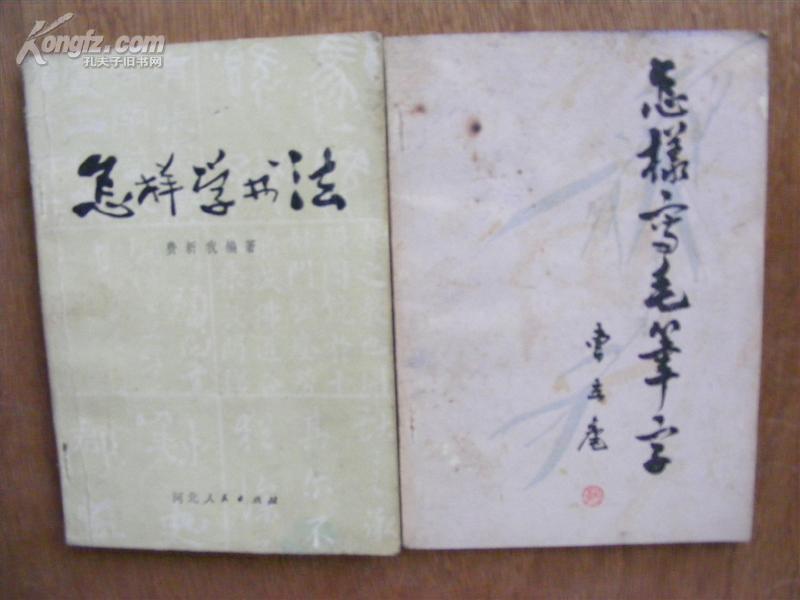 Kongfz.com
孔夫子旧书网
怎样学书法
费新我编著
河北人民出版社
怎樣寫毛筆字
曹立庵